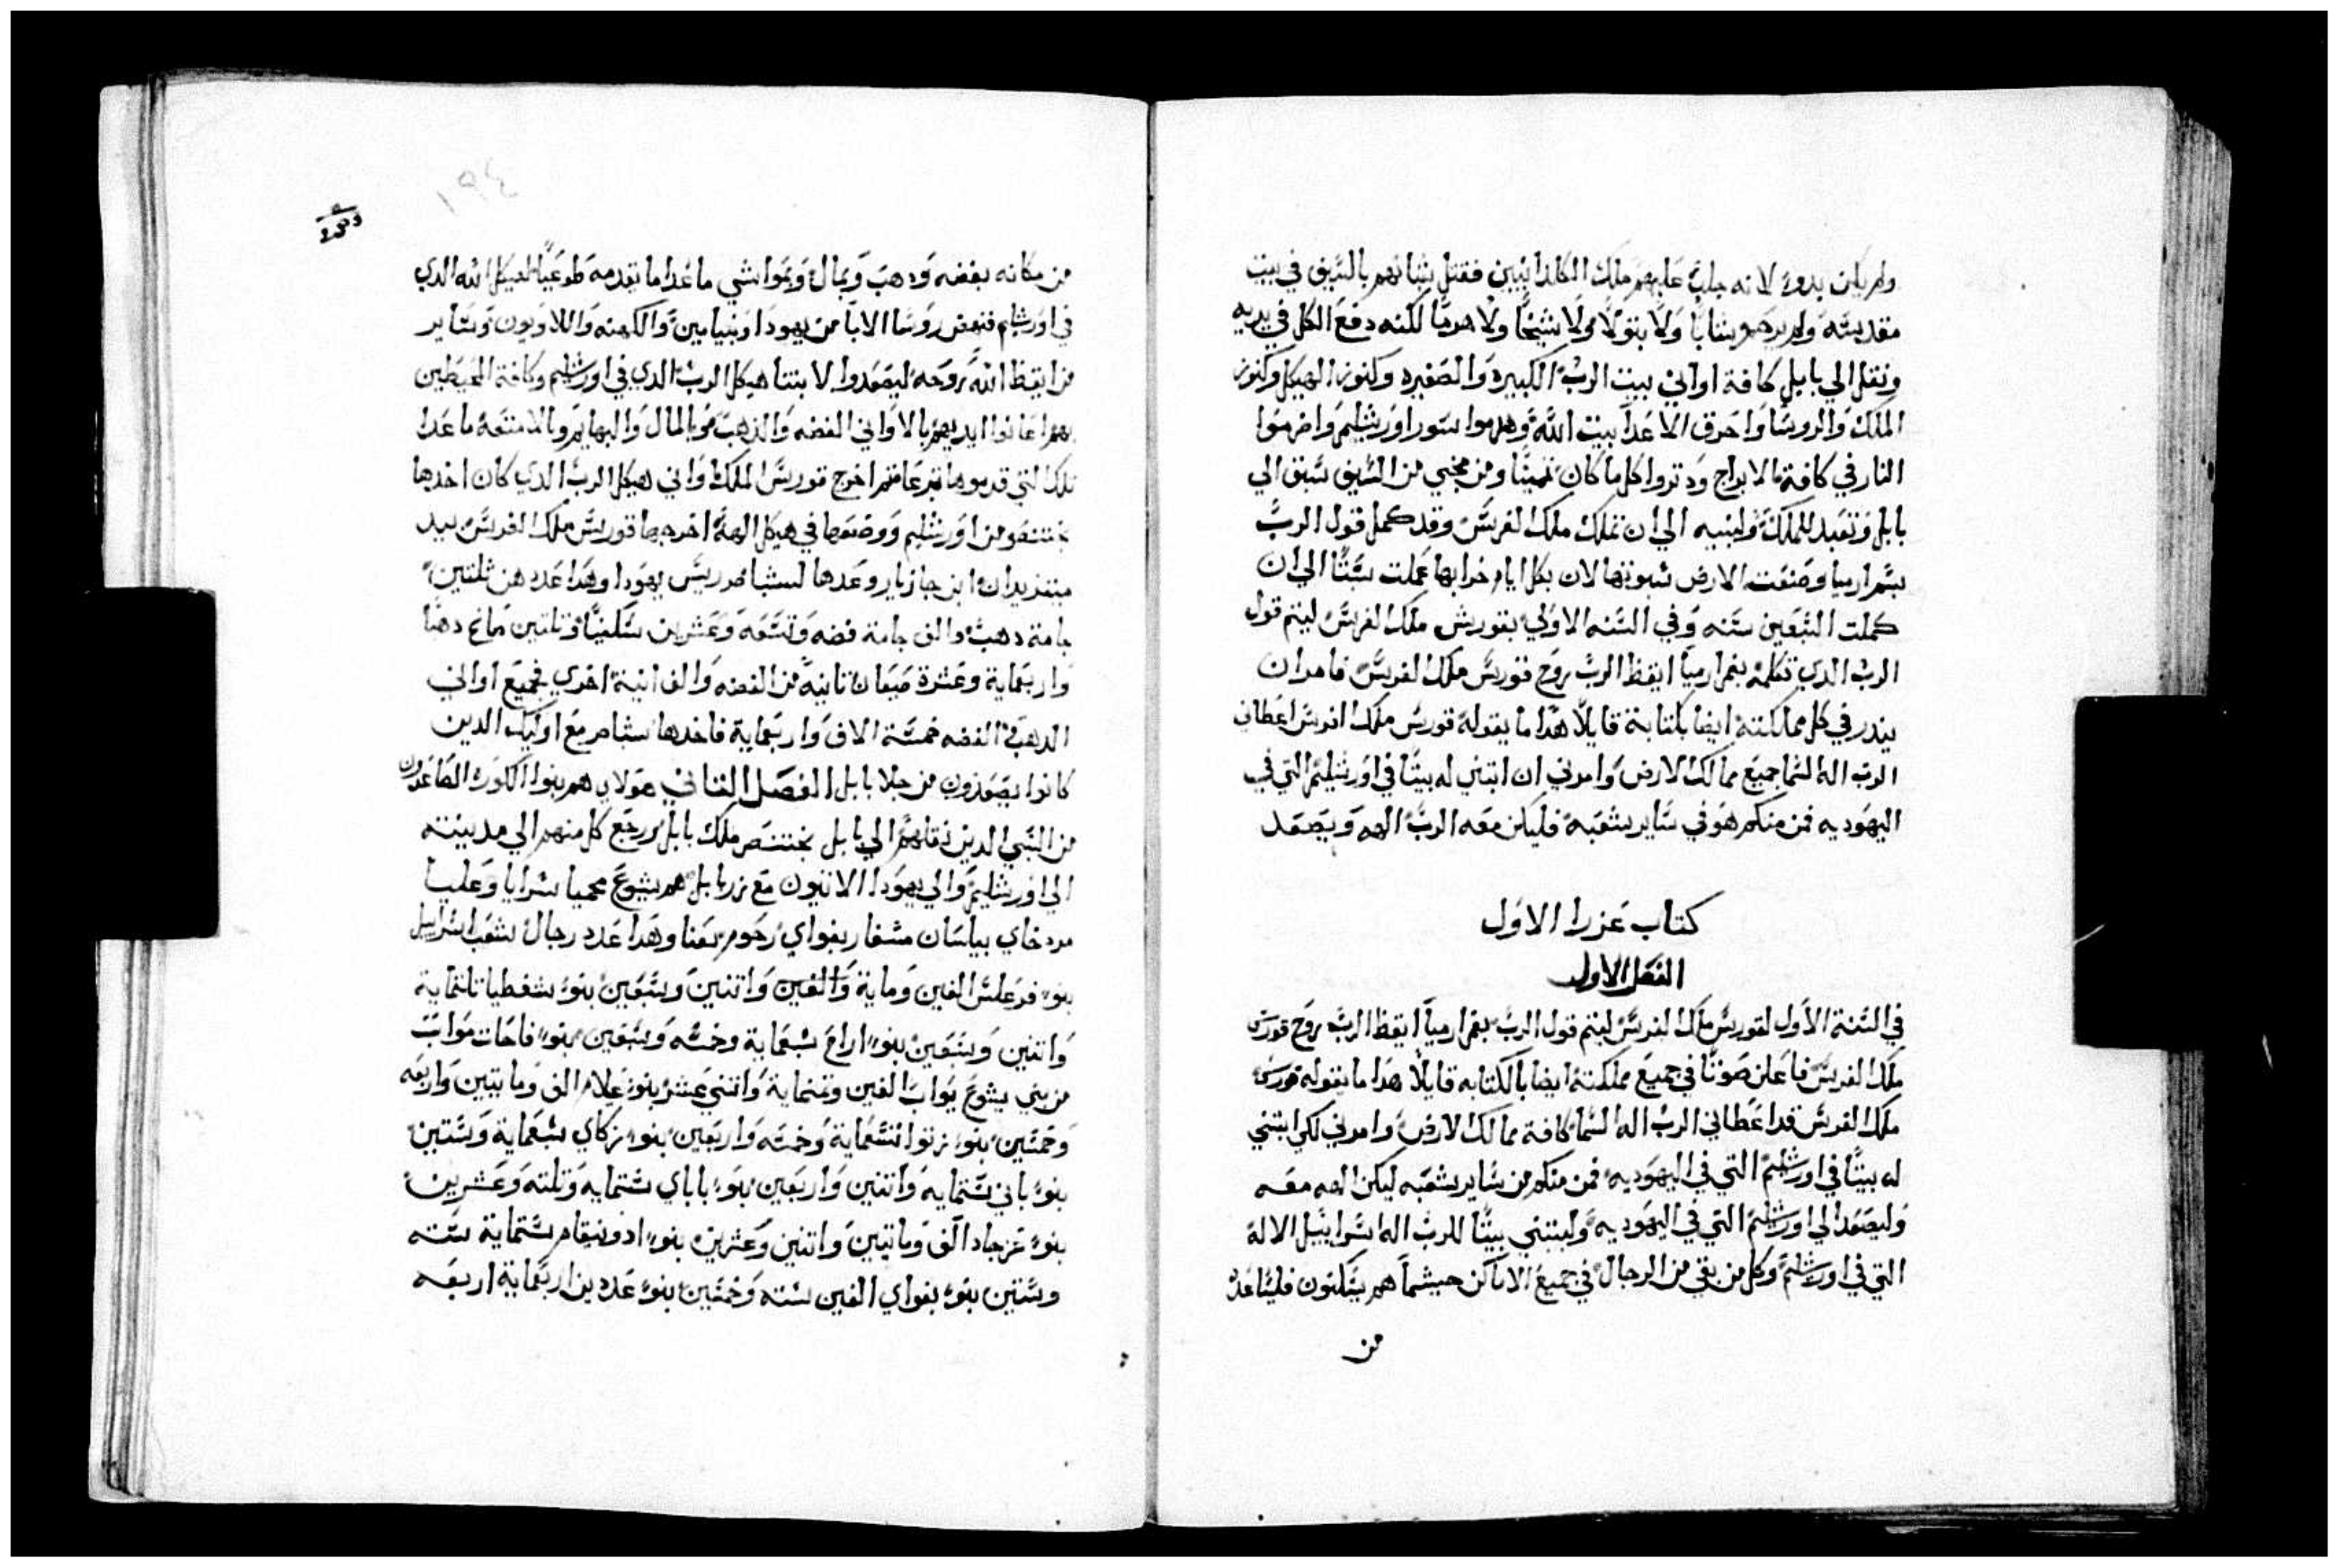 ولم يكن بدوء لانه جلب عليهم ملك الكلدانيين فقتل شبانهم بالسيف في بيت
مقدسه ولم يرحم شابا ولا بتولا ولا شيخا ولا هرما لكنه دفع الكل في يديه
ونقل الي بابل كافة اواني بيت الرب الكبيره والصغيره وكنوز الهيكل وكنوز
الملك والروسا واحرق الاعدا بيت الله وهدموا سور اورشليم واضرموا
النار في كافة الابراج ودتروا كل ما كان ثمينا ومن نجي من السيف سبق الي
بابل وتعبد للملك ولبنيه الي ان تملك ملك الفرس وقد كمل قول الرب
بتم ارميا وصنعت الارض سبوتها لان بكل ايام خرابها عملت سبتا الي ان
كملت السبعين سنه وفي السنه الاولي لقورش ملك الفرس ليتم قول
الرب الدي تكلمه بفم ارميا ايقظ الرب روح قورس ملك الفرس فامر ان
يندر في كل مملكته ايضا بكتابة قايلا هدا ما يقوله قورس ملك الفرس اعطاني
الرب اله السما جميع ممالك الارض وامرني ان ابتني له بيتا في اورشليم التي في
اليهوديه فمن منكم هو في ساير شعبه فليكن معه الرب الهه ويصعد
كتاب عزرا الاول
الفصل الاول
في السنة الاول لقورس ملك الفرس ليتم قول الرب بفم ارميا ايقظ الرب روح قورس
ملك الفرس فاعلن صوتا في جميع مملكته ايضا بالكتابه قايلا هدا ما يقوله قورس
ملك الفرس قد اعطاني الرب اله السما كافة ممالك الارض وامرني لكي ابتني
له بيتا في اورشليم التي في اليهوديه فمن منكم من ساير شعبه ليكن الهه معه
وليصعد الي اورشليم التي في اليهوديه وليبتني بيتا للرب اله اسراييل الاله
التي في اورشليم وكل من بقي من الرجال في جميع الاماكن حيثما هم يسكنون فليساعده
من
١٩٤
من مكانه بفضه ودهب وبمال وبمواشي ما عدا ما تقدمه طوعيا لهيكل الله الدي
في اورشليم فنهض روسا الابا من يهودا وبنيامين والكهنه واللاويون وساير
من ايقظ الله روحه ليصعدوا لابتنا هيكل الرب الدي في اورشليم وكافة المحيطين
بهم اعانوا ايديهم بالاواني الفضه والدهب وبالمال والبهايم وبالامتعة ما عدا
تلك التي قدموها تبرعا ثم اخرج قورس الملك اواني هيكل الرب الدي كان اخدها
بختنصر من اورشليم ووضعها في هيكل الهه اخرجها قورس ملك الفرس بيد
متقريدان ابن جازبار وعدها لسشباصر ريس يهودا وهدا عددهن ثلتين
جامة دهب والف جامة فضه وتسعه وعشرين سكينا وتلتين دهبا
واربعماية وعشرة ثانيه من الفضه والف انية اخري فجميع اواني
الدهب الفضه خمسة الاف واربعماية فاخدها سشباصر مع اوليك الدين
كانوا يصعدون من جلا بابل الفصل الثاني هولاي هم بنوا الكورة الصاعدون
من السبي الدين نقلهم الي بابل بختنصر ملك بابل ورجع كل منهم الي مدينته
الي اورشليم والي يهودا الاتيون مع زربابل هم يشوع نحميا سرايا وعليا
مردخاي بيلسان مشفار بغواي رحوم بعنا وهدا عدد رجال شعب اسراييل
بنو فرعلس الفين وماية واتنين وسبعين بنو شفطيا تلتماية
واتنين وسبعين بنو اراع سبعماية وخمسه وسبعين بنو فاحات مواب
من بني يشوع يواب الفين وتمنماية واتني عشر بنو عيلام الف ومايتين واربعه
وخمسين بنو زتوا تسعماية وخمسه واربعين بنو زكاي سبعماية وستين
بنو باني ستمايه واتنين واربعين بنو باباي ستمايه وتلته وعشرين
بنو عزجاد الف ومايتين واتنين وعشرين بنو ادونيقام ستماية سته
وستين بنو بغواي الفين سته وخمسين بنو عدين اربعماية اربعه